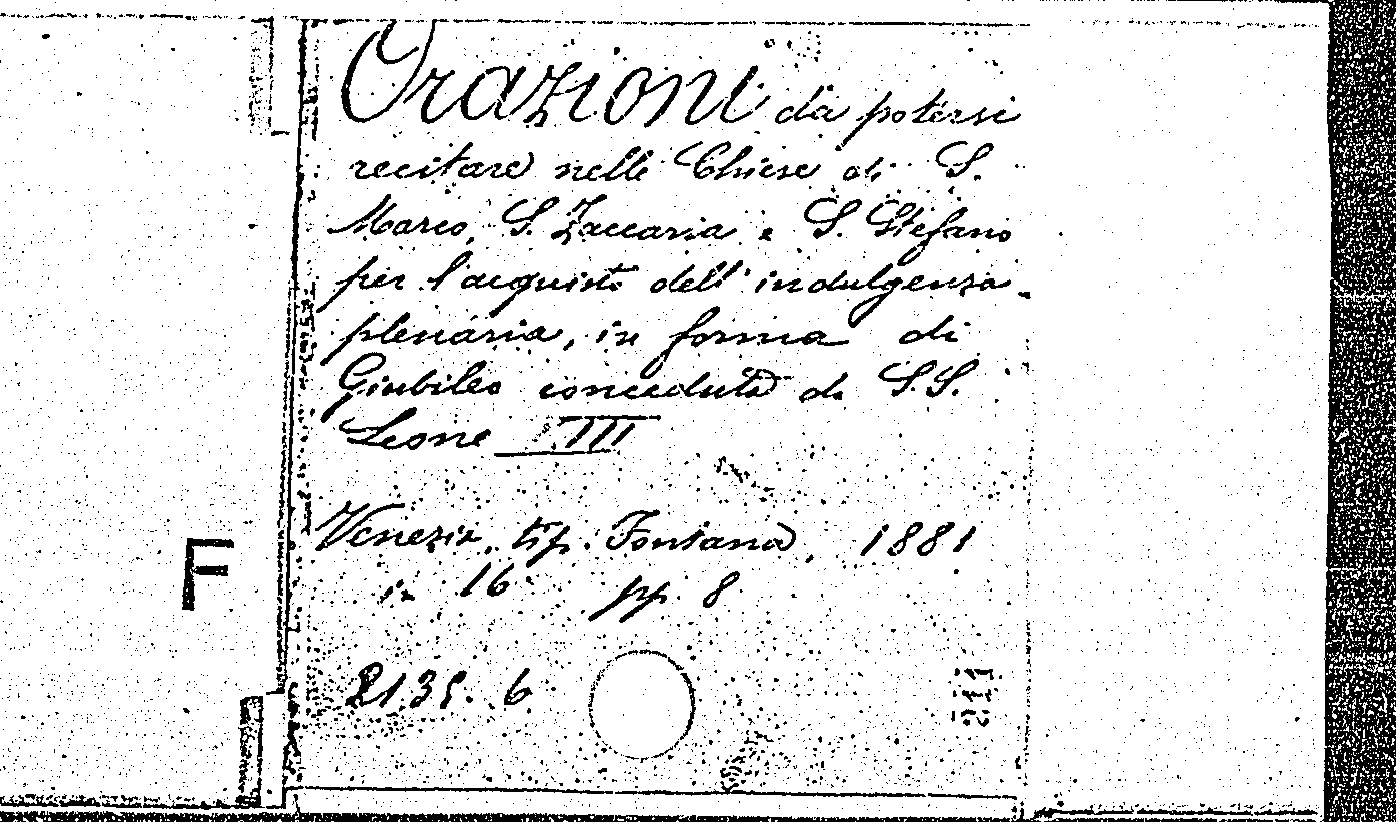 Orazioni da potersi
recitare nelle Chiese di S.
Marco, S. Zaccaria e S. Stefano
per l'acquisto dell'indulgenza
plenaria, in forma di
Giubileo conceduta da S.S.
Leone XIII
Venezia, tip. Fontana, 1881
in 16 pp. 8
F
2135. 6